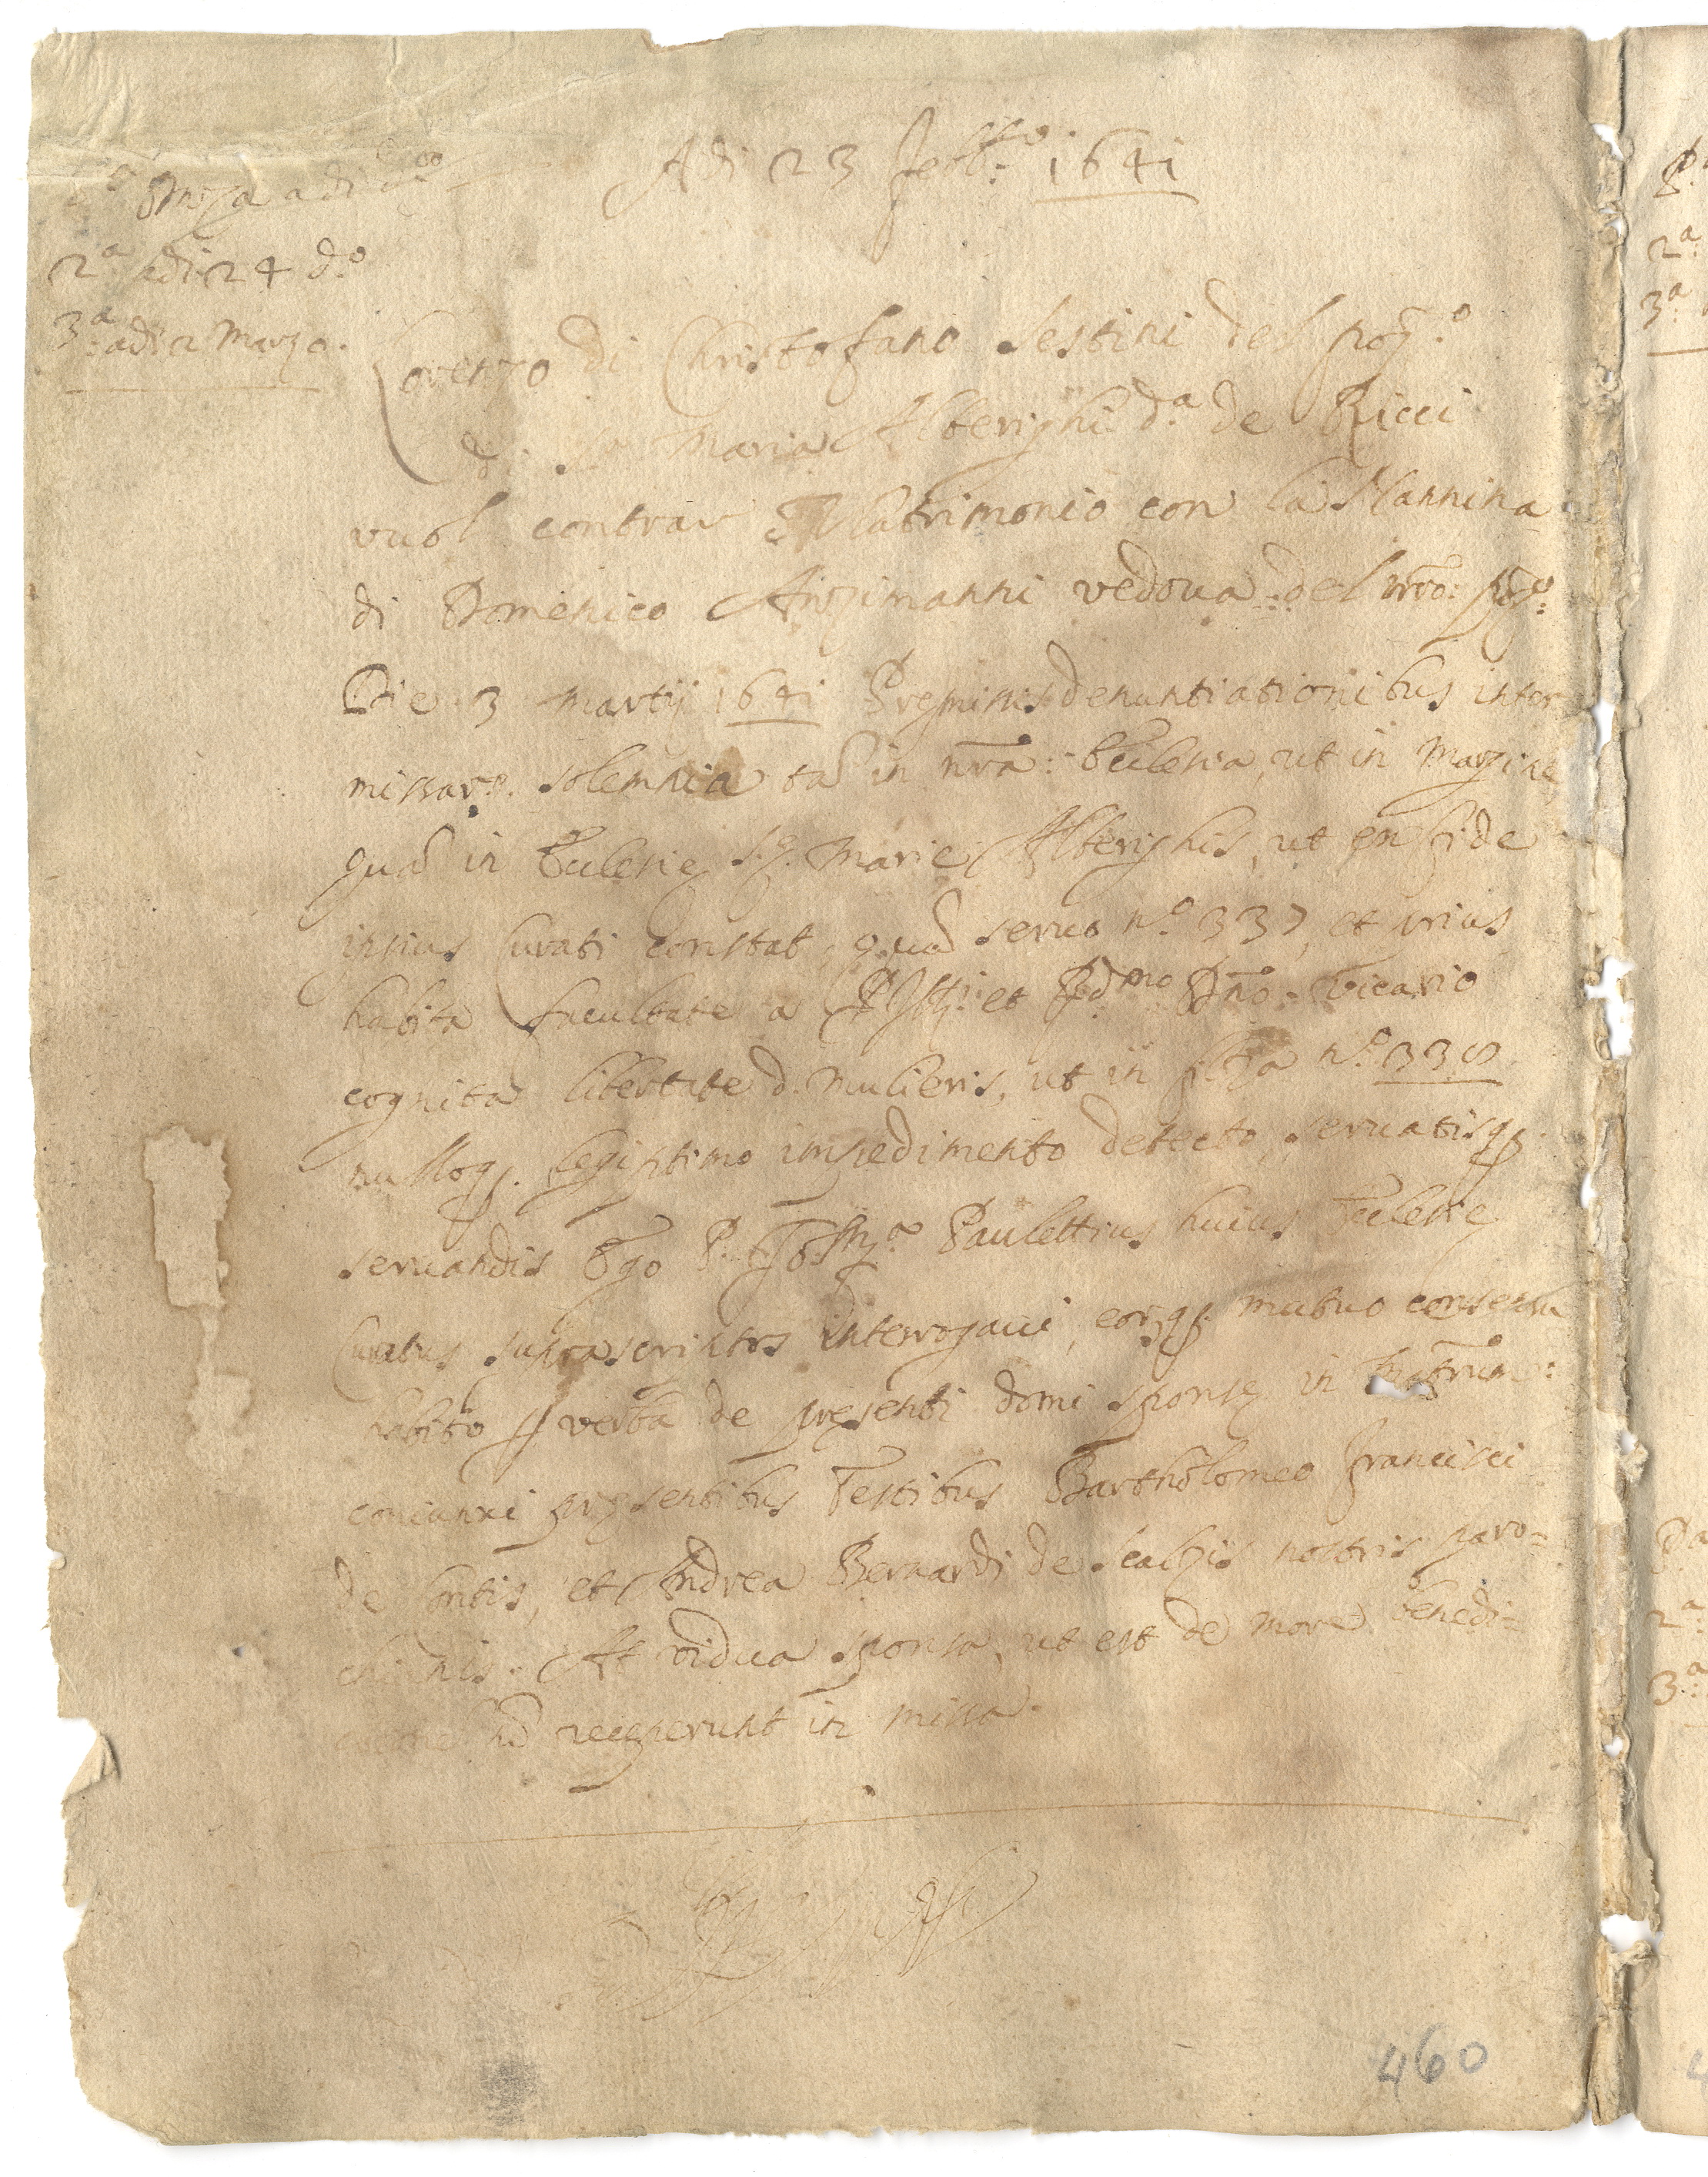 Adi 23 Febb.º 1641
adi d.º
2.ª adi 24 d.º
3.ª adi 2 Marzo.
Lorenzo di Christofano Sestini del pop.º
di S.ª Maria Alberighi d.ª de Ricci
vuol contrar Matrimonio con la Nannina
di Domenico Anzimanni vedova del nrõ: pop.º:
Die 3 martij 1641 Premissis denuntiationibus inter
missar. solemnia ta in nrã: Ecclesia, ut in margine,
quã in Ecclesie S.e Marie Alberighis, ut in fide
ipsius Curati constat, quã servo n.º 337, et prius
habita facultate a P Ill: et R.dmo Dno: Vicario
cognita libertate d. mulieris, ut in filza n.º 338
nulloq. legiptimo impedimento detecto, servatisq.
servandis Ego P. Paulettius huius Ecclesie
Curatus suprascriptos interrogavi, eorq. mutuo consensu
habito p verba de presenti domi sponse in Matrim:
coniunxi presentibus Testibus Bartholomeo Francisci
de et Andrea Bernardi de Scalzis nostris paro=
chianis. At vidua sponsa, ut est de more benedi=
nõ receperunt in missa.
460